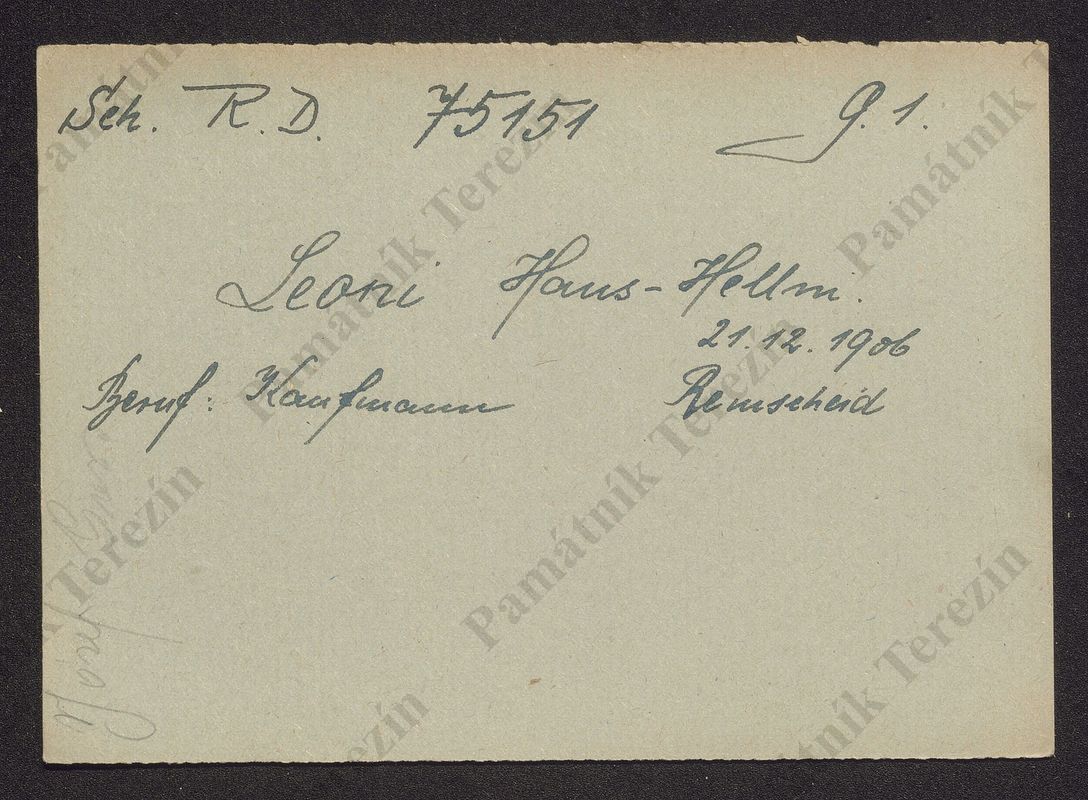 Sch. R. D. 75151 G. 1.
Leoni Hans-Hellm.
21.12.1906
Beruf: Kaufmann Remscheid
Památník Terezín
Památník Terezín
Památník Terezín
Památník Terezín
Památník Terezín